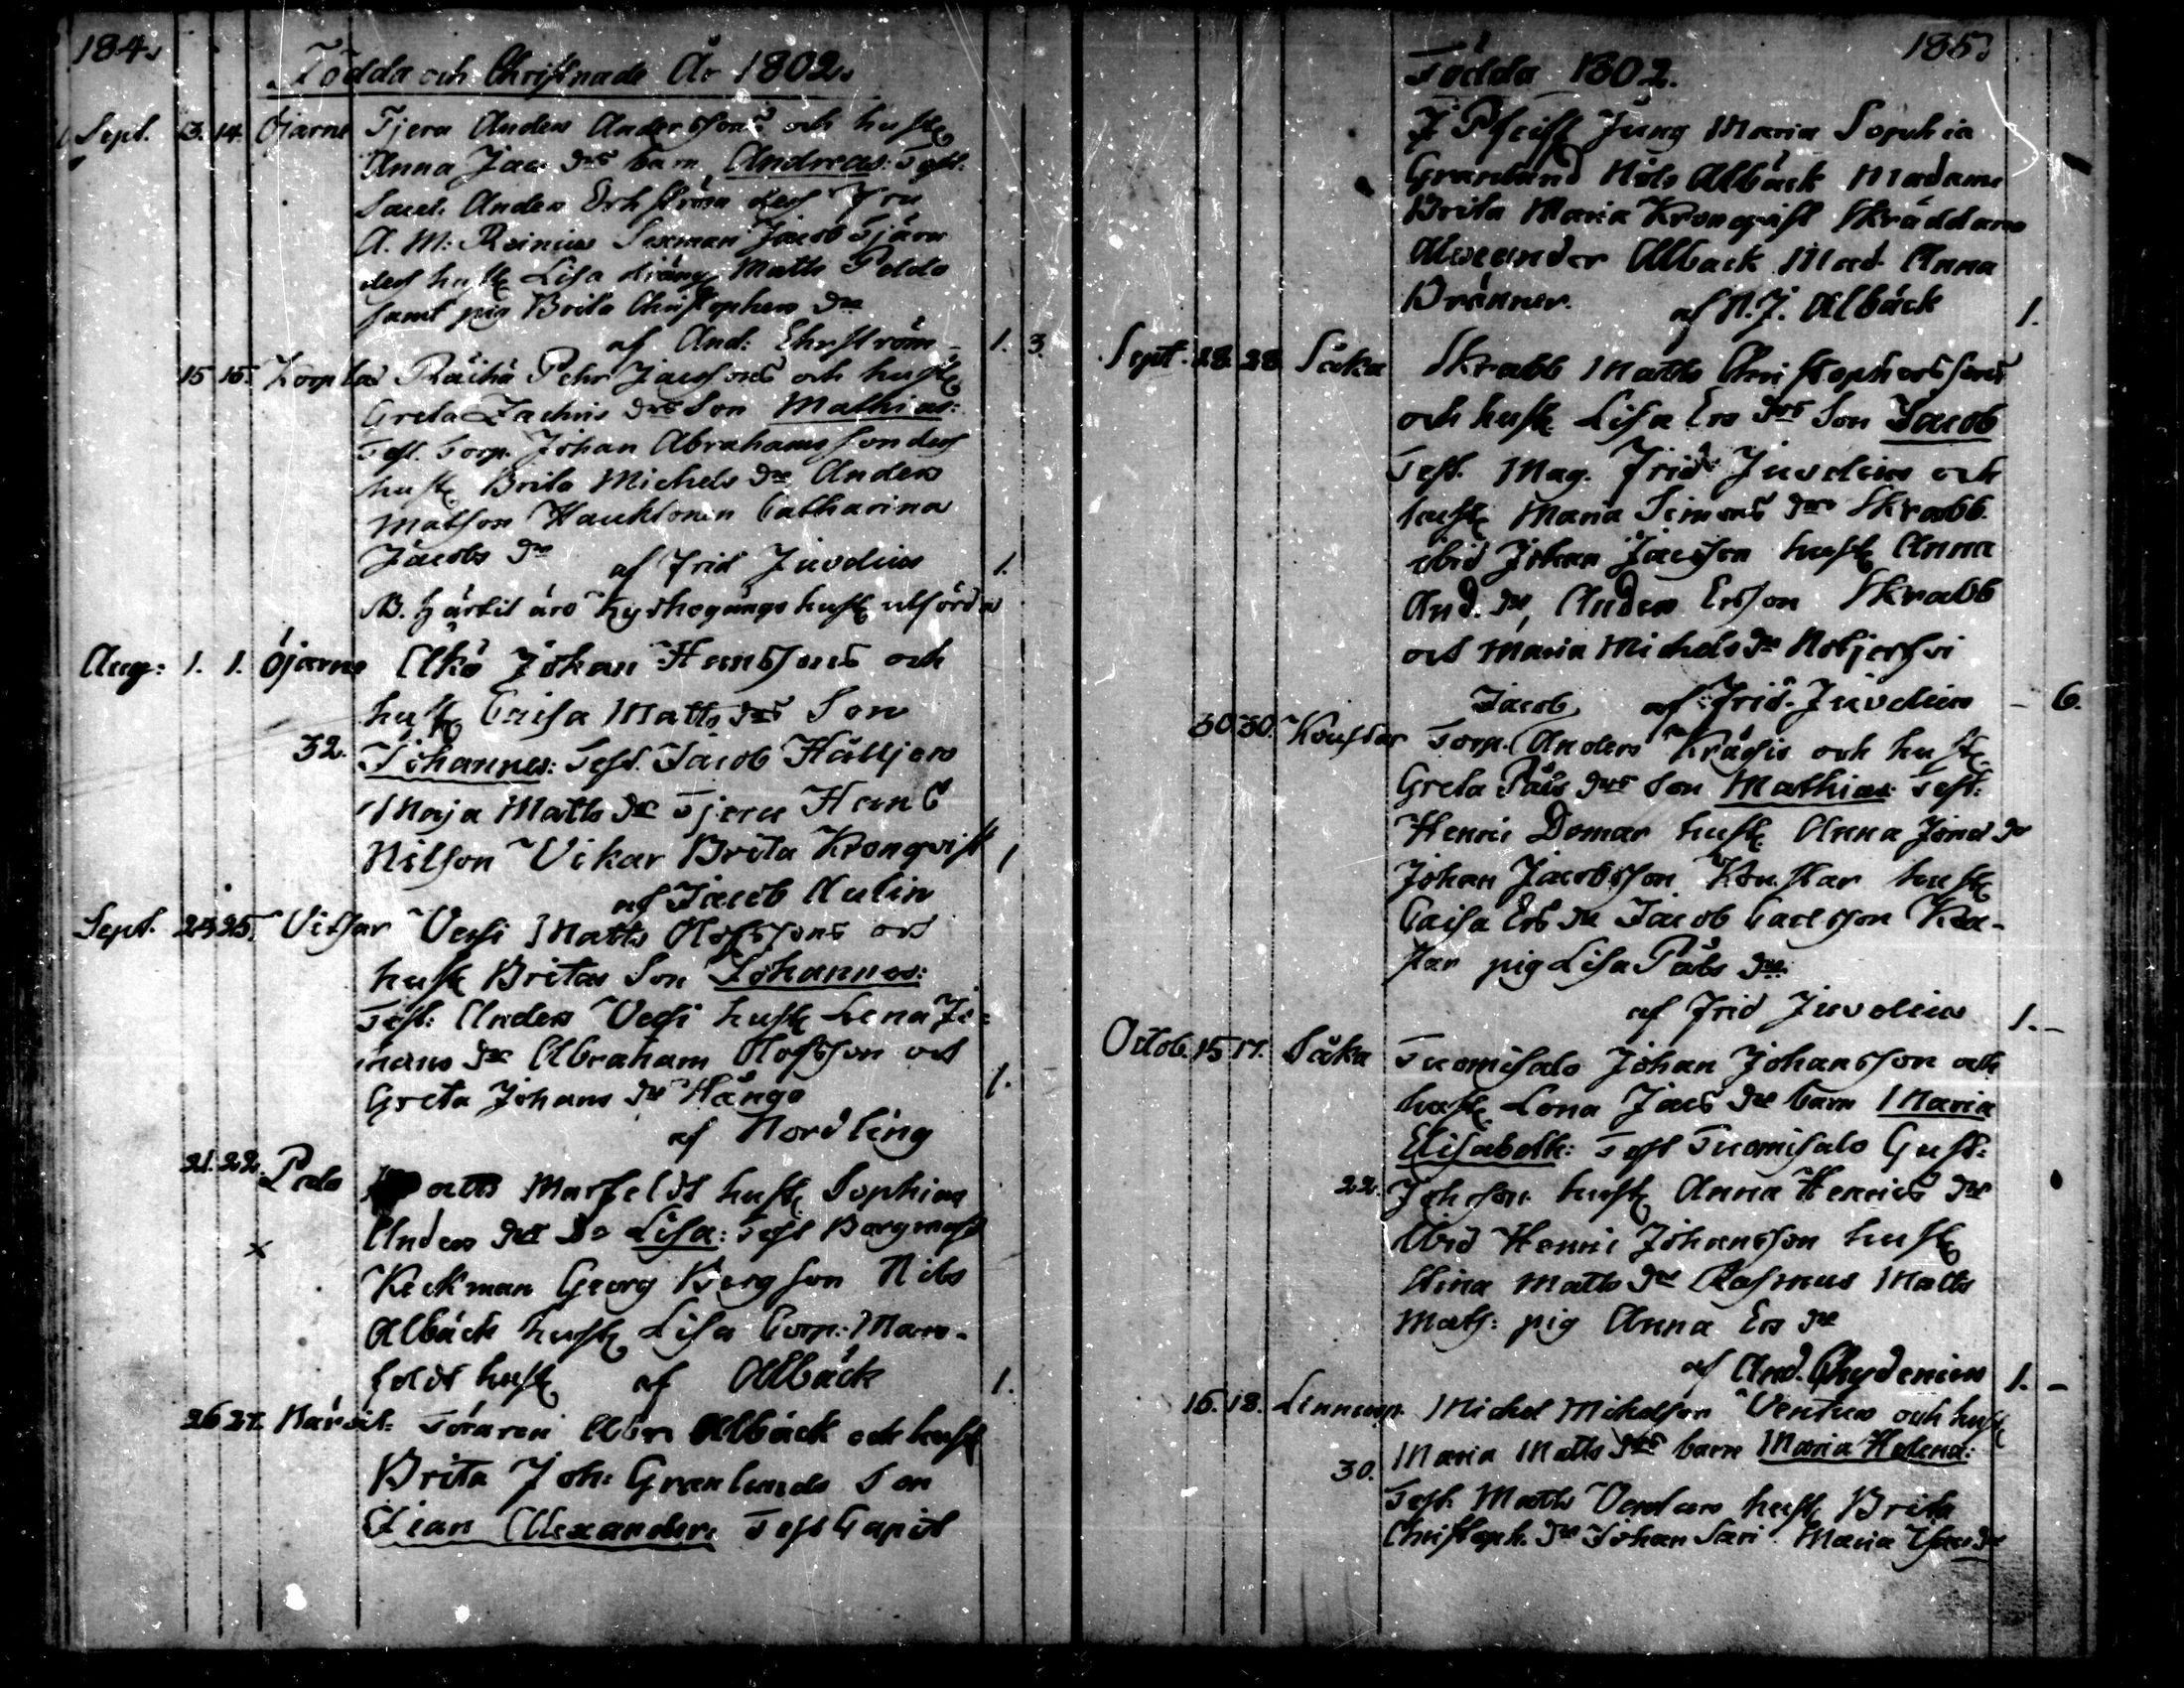 184.
Födda och Christnade År 1802.
Sept. 13. 14. Öjarne Tjeru Anders Anderssons och hustr
Anna Jacs drs barn Andreas: Test.
Sacell. Anders Ehrström dess Fru
A. M: Reinius Sexman Jacob Tjäru
dess hustr Lisa dräng Matts Peldo
samt pig Brita Christophers dr
af And: Ehrström 1. 3.
15 15. Korplax Räihä Pehr Jacssons och hustr
Greta Zachris drs Son Mathias:
Test. Torp. Johan Abrahamsson dess
hustr Brita Michels dr Anders
Matsson Haukkonen Catharina
Jacobs dr af Frid Juvelius 1.
NB. härtil äro Kyrkogångs hustr utförda
Aug: 1. 1. Öjarne Alkö Johan Hanssons och
hustr Caisa Matts drs Son
32. Johannes: Test. Jacob Hälljers
Maja Matts dr Tjeru
Nilsson Vikar Brita Kronqvist 1
af Jacob Aulin
Sept. 25. Vitsar Vessi Matts Olofssons och
hustr Britas Son Johannes:
Test: Anders Vessi hustr Lena Jo=
hans dr Abraham Olofsson och
Greta Johans dr Hånge 1.
af Nordling
21. 22. Palo Matts Marfeldt hustr Sophias
Anders drs Dr Lisa: Test Borgmäst
Keckman Georg Bergson Nils
Albäck hustr Lisa Corp: Mar-
feldt hustr af Albäck 1.
26 27. Närvil: Föraren Abr. Albäck och hustr
Brita Joh: Granlunds Son
Alexander: Test Capit
185.
Födda 1802.
J Pfeiff Jung Maria Sophia
Granlund Nils Albäck Madame
Brita Maria Kronqvist Skräddare
Alexander Albäck Mad. Anna
Bränner. af N. J. Albäck 1.
Sept. 28. 28 Såka Skrabb Matts Christopherssons
och hustr Lisa Ers drs Son Jacob
Test. Mag. Frid. Juvelius och
hustr Maria Simons dr Skrabb.
ibid Johan Jacsson hustr Anna
And. dr, Anders Ersson Skrabb
och Maria Michels dr
Jacob af Frid. Juvelius – 6.
30. 30. Koustar Torp. Anders Krågis och hustr
Greta Påls drs Son Mathias Test:
Henric Domar hustr Anna Jons dr
Johan Jacobsson Koustar hustr
Caisa Ers dr Jacob Carlsson Kou-
star pig Lisa Påls dr.
af Frid Juvelius 1. –
Octob. 15 17. Såka Tuomisalo Johan Johansson och
hustr Lena Jacs drs barn Maria
Elisabeth: Test Tuomisalo Gust:
22. Johsson hustr Anna Henrics dr
Ibid Henric Johansson hustr
Stina Matts dr Rasmus Matts
Mats: pig Anna Ers dr
af And. Chydenius 1. –
16. 18. Linnusp. Michel Michelsson Ventus och hustr
30. Maria Matts drs barn Maria Helena:
Test. Matts Ventus hustr Brita
Christoph. dr Johan Sari Maria Isacs dr